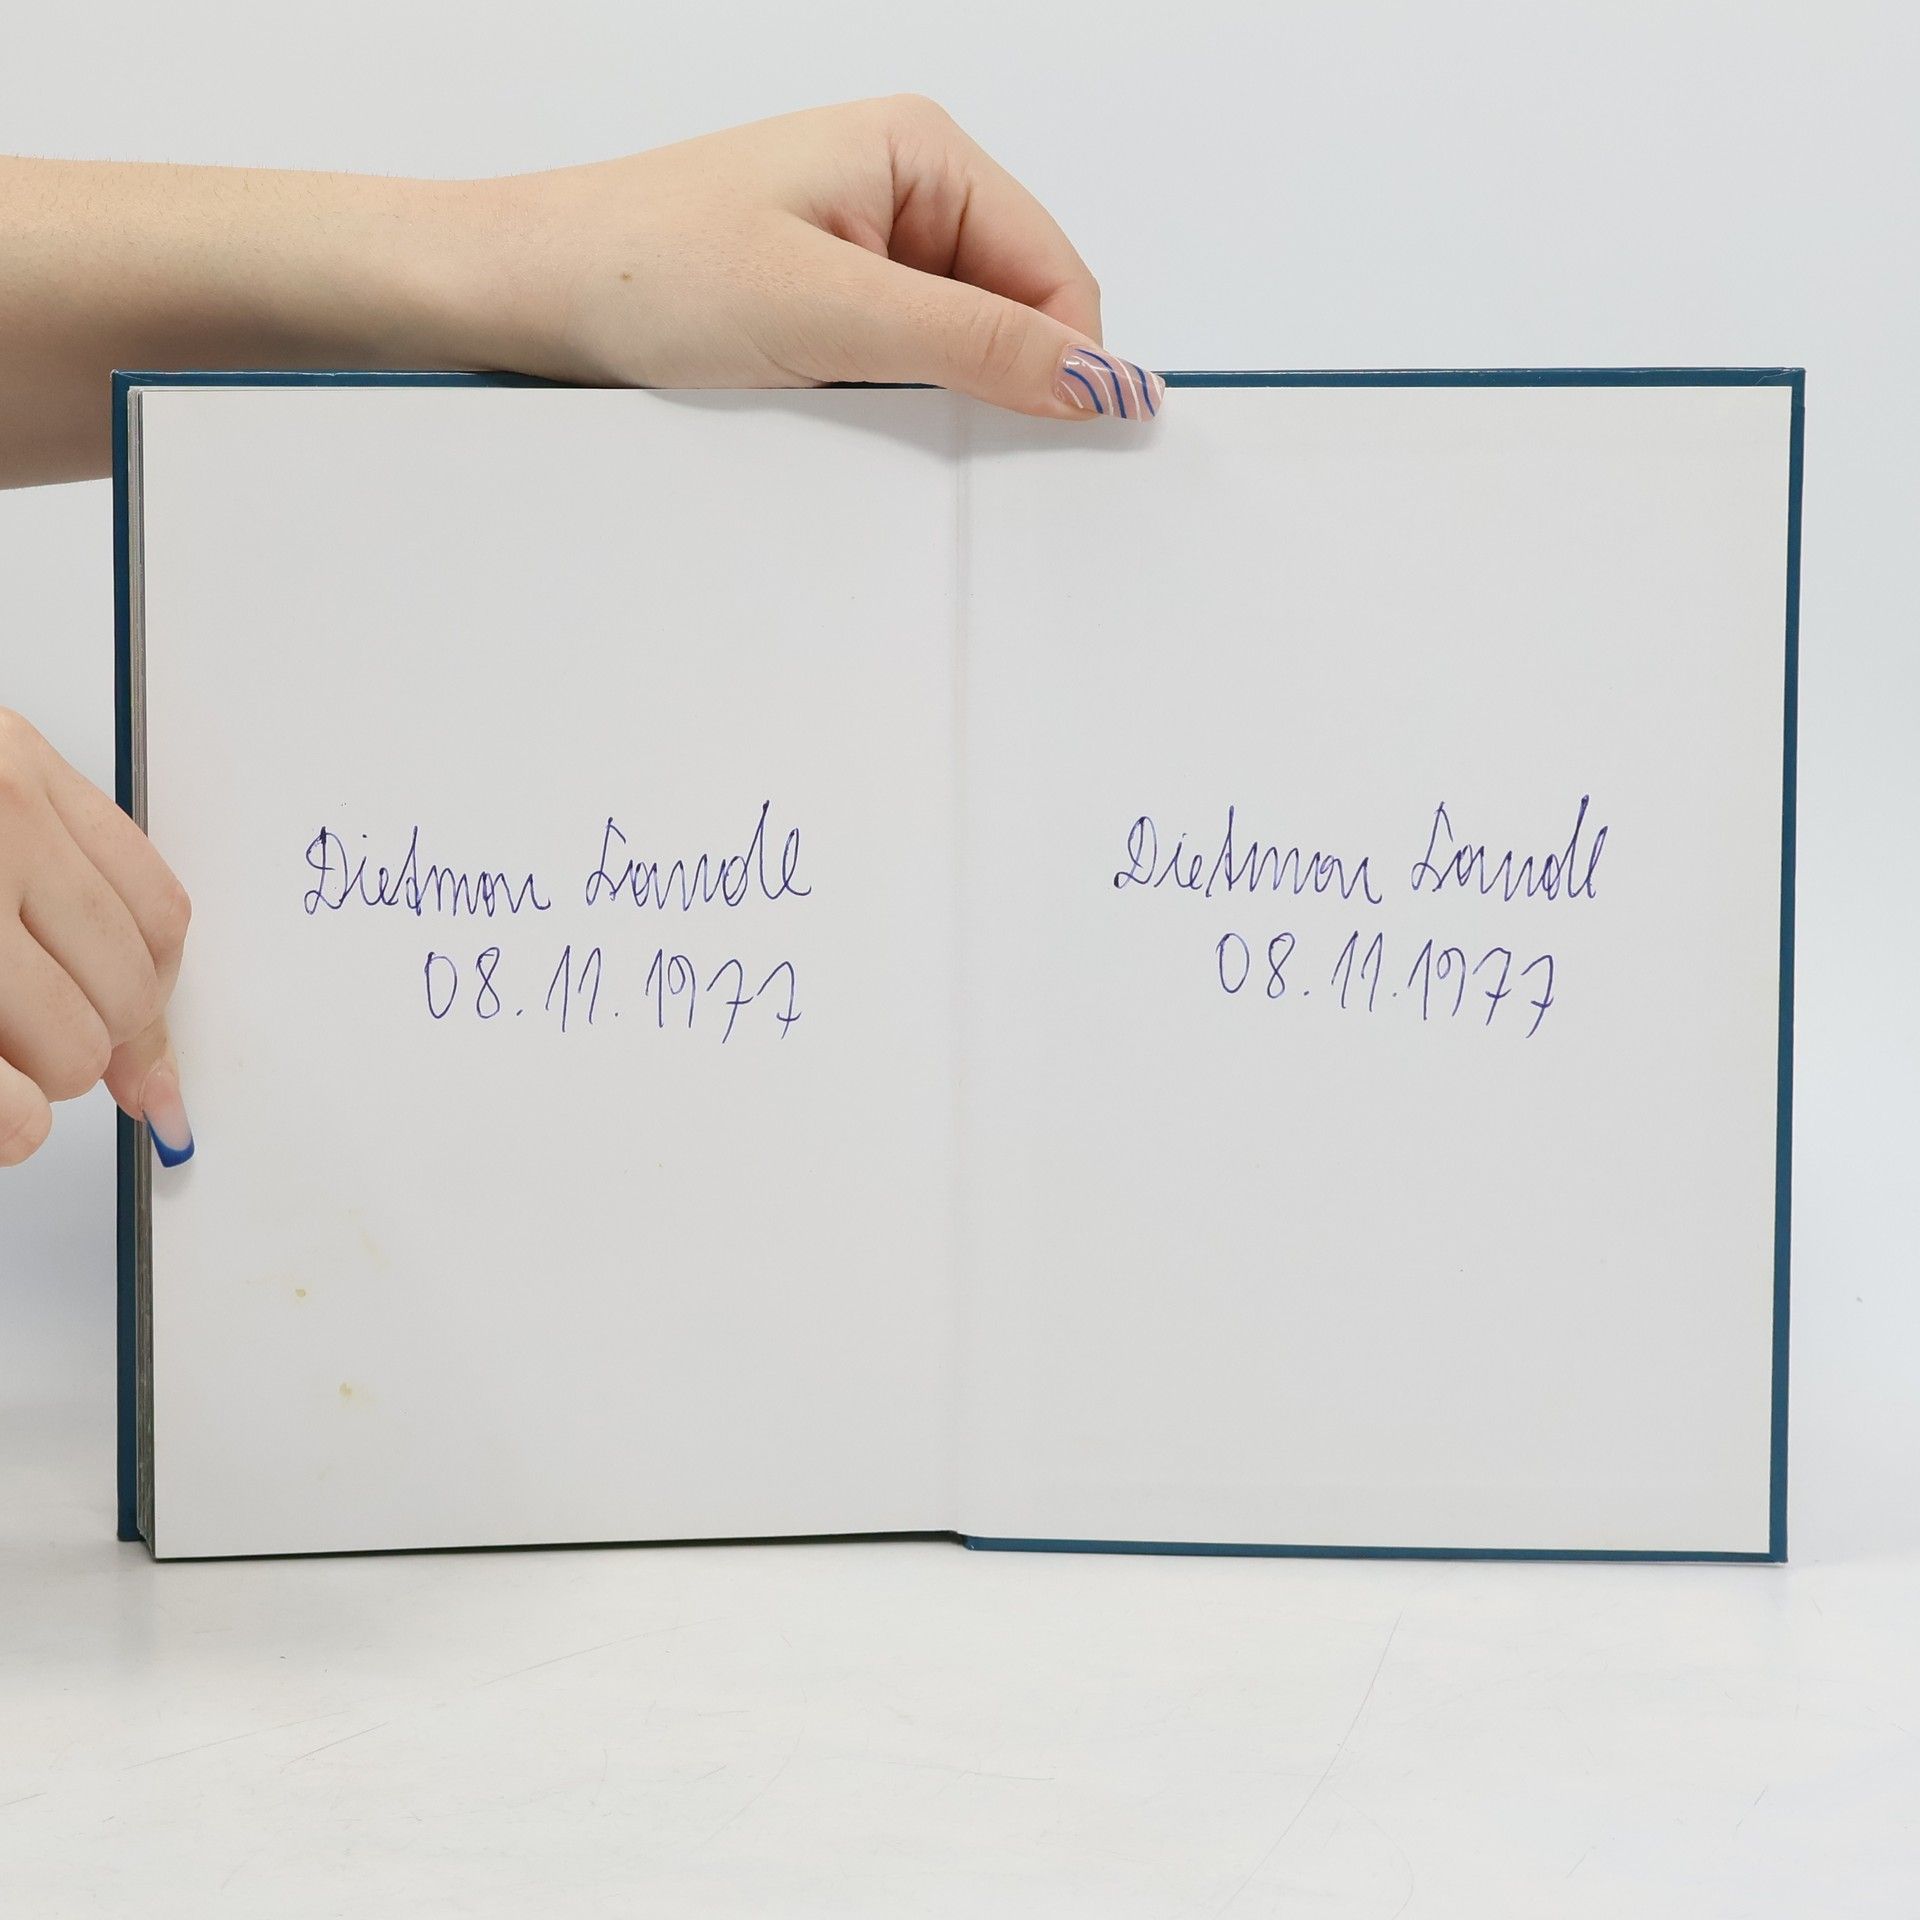 Dietmar Landl
08.11.1977
Dietmar Landl
08.11.1977